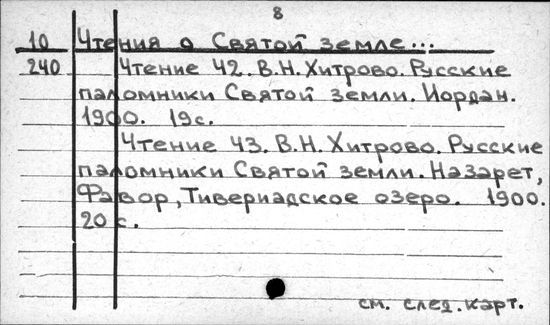 8
10 Чтения о Святой земле...
240 Чтение 42. В.Н. Хитрово. Русские
паломники Святой земли. Иордан.
1900. 19с.
Чтение 43. В.Н. Хитрово. Русские
паломники Святой земли. Назарет,
Фавор, Тивериадское озеро. 1900.
20 с.
см. след. карт.